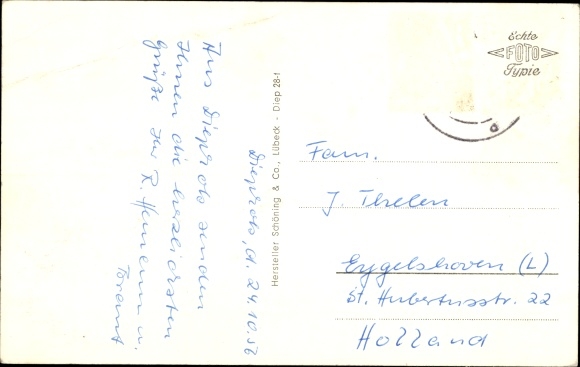 Diepholz, d. 24.10.56
Aus Diepholz senden
Ihnen die herzlichsten
Grüße
Hersteller Schöning & Co., Lübeck - Diep 28-1
Echte
FOTO
Typie
Fam.
J. Thelen
Eygelshoven (L)
St. Hubertusstr. 22
Holland